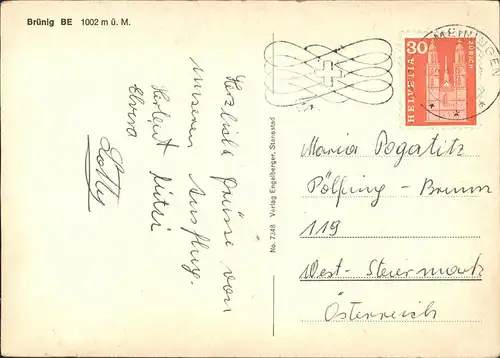 Brünig BE 1002 m ü. M.
Herzliche Grüsse von
unserem Ausflug.
Herbert
Elvira
Lotty
No. 7348 Verlag Engelberger, Stansstad
30
HELVETIA
ZÜRICH
MEIRINGEN
Maria Pogatitz
Pölfing-Brunn
119
West-Steiermark
Österreich